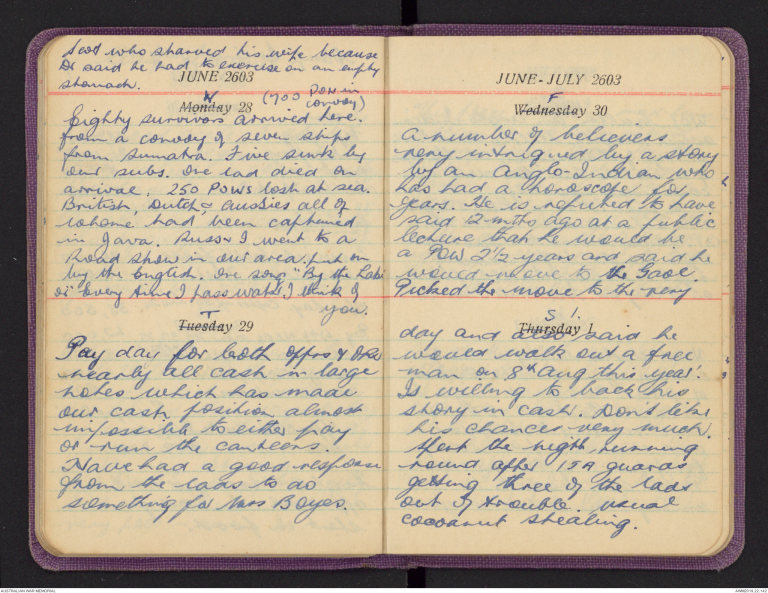 Scot who starved his wife because
Dr said he had to exercise on an empty
stomach.
JUNE 2603
W
(700 POWs in
convoy)
Monday 28
Eighty survivors arrived here.
from a convoy of seven ships
from Sumatra. Five sunk by
our subs. One lad died on
arrival. 250 POWs lost at sea.
British, Dutch & Aussies all of
whome had been captured
in Java. Russ & I went to a
Road show in our area put on
by the English. One song "By the
is" Every time I pass water I think of
you.
T
Tuesday 29
Pay day for both offrs & ORs
nearly all cash in large
notes which has made
our cash position almost
impossible to either pay
or run the canteens.
Have had a good response
from the lads to do
something for Mrs Boyes.
JUNE-JULY 2603
F
Wednesday 30
A number of believers
very intrigued by a story
by an Anglo-Indian who
has had a horoscope for
years. He is reputed to have
said 12 mths ago at a public
lecture that he would be
a POW 2½ years and said he
would move to the Gaol.
Picked the move to the very
S 1.
Thursday 1
day and also said he
would walk out a free
man on 8th Aug this year!
Is willing to back his
story in cash. Don't like
his chances very much.
Spent the night running
round after IJA guards
getting three of the lads
out of trouble. usual
cocoanut stealing.
AUSTRALIAN WAR MEMORIAL
AWM2019.22.142